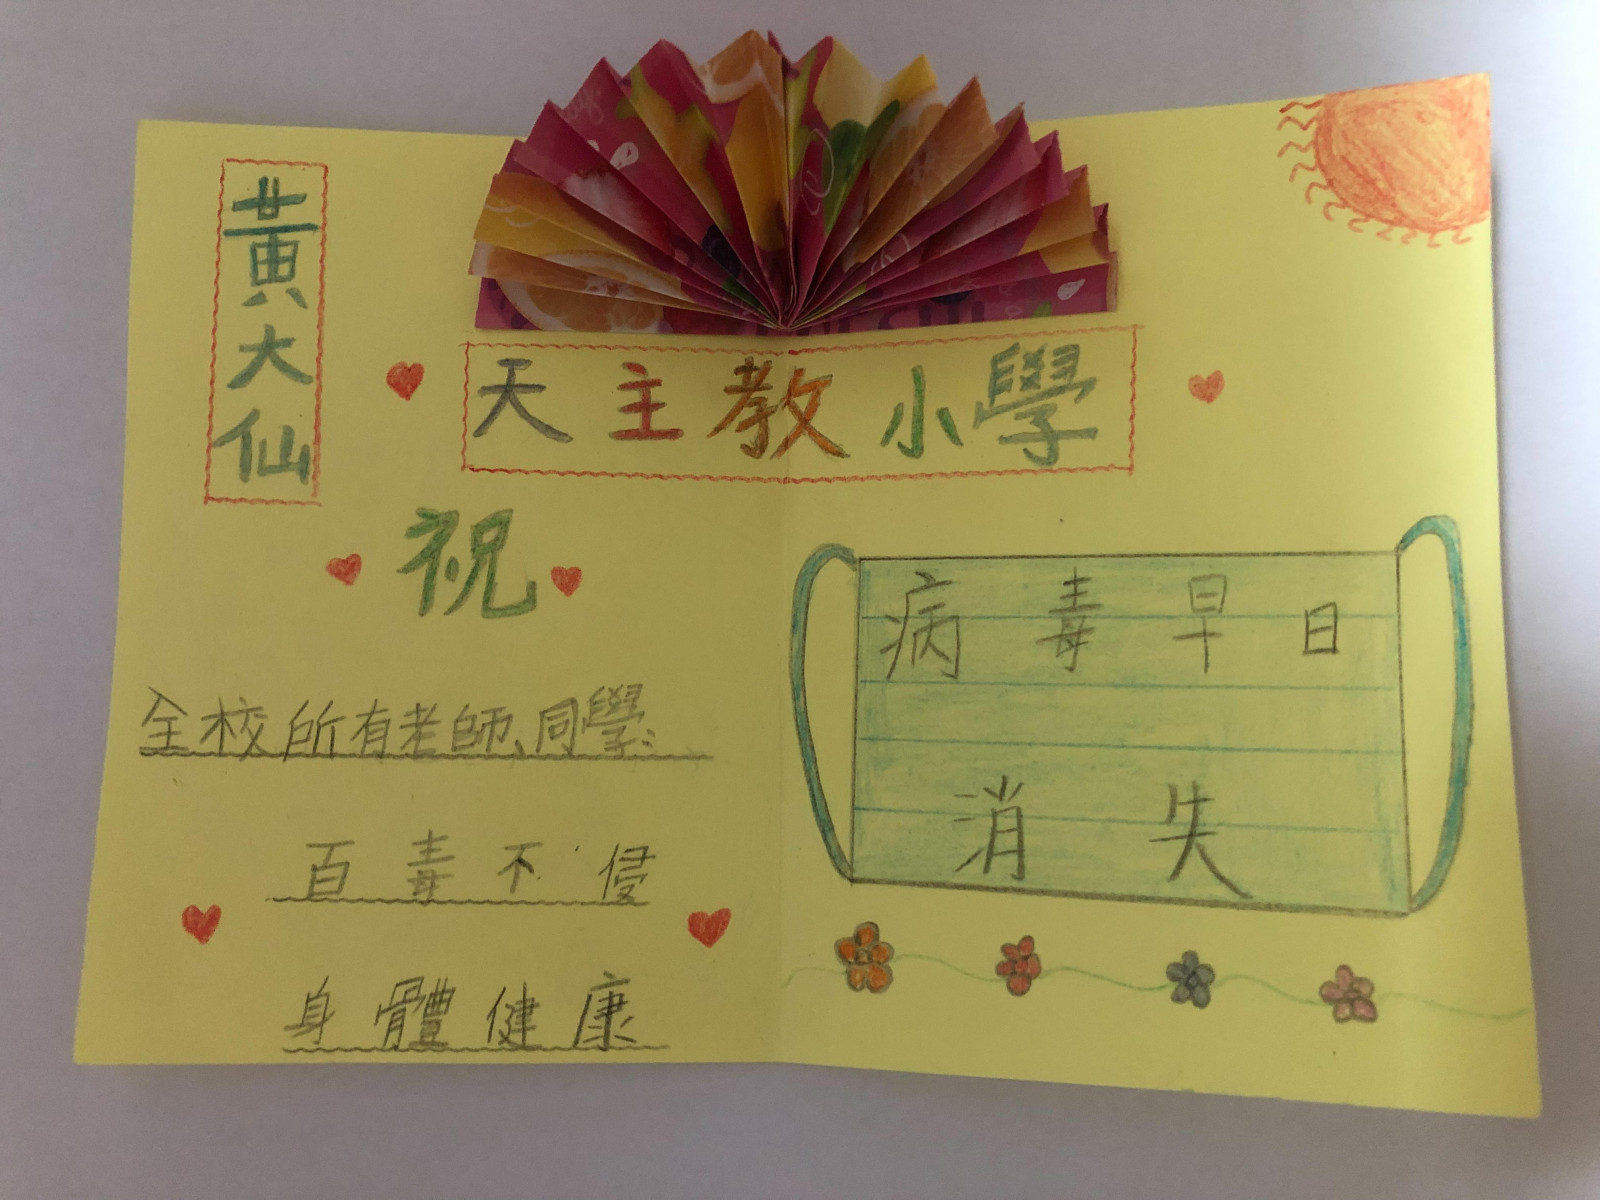 黃大仙
天主教小學
祝
全校所有老師、同學：
百毒不侵
身體健康
病毒早日
消失